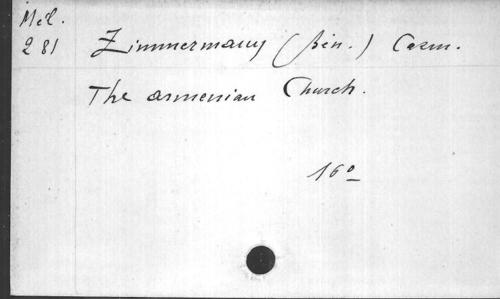 Mél.
281
Zimmermann (jun.) Carm.
The armenian Church.
16º